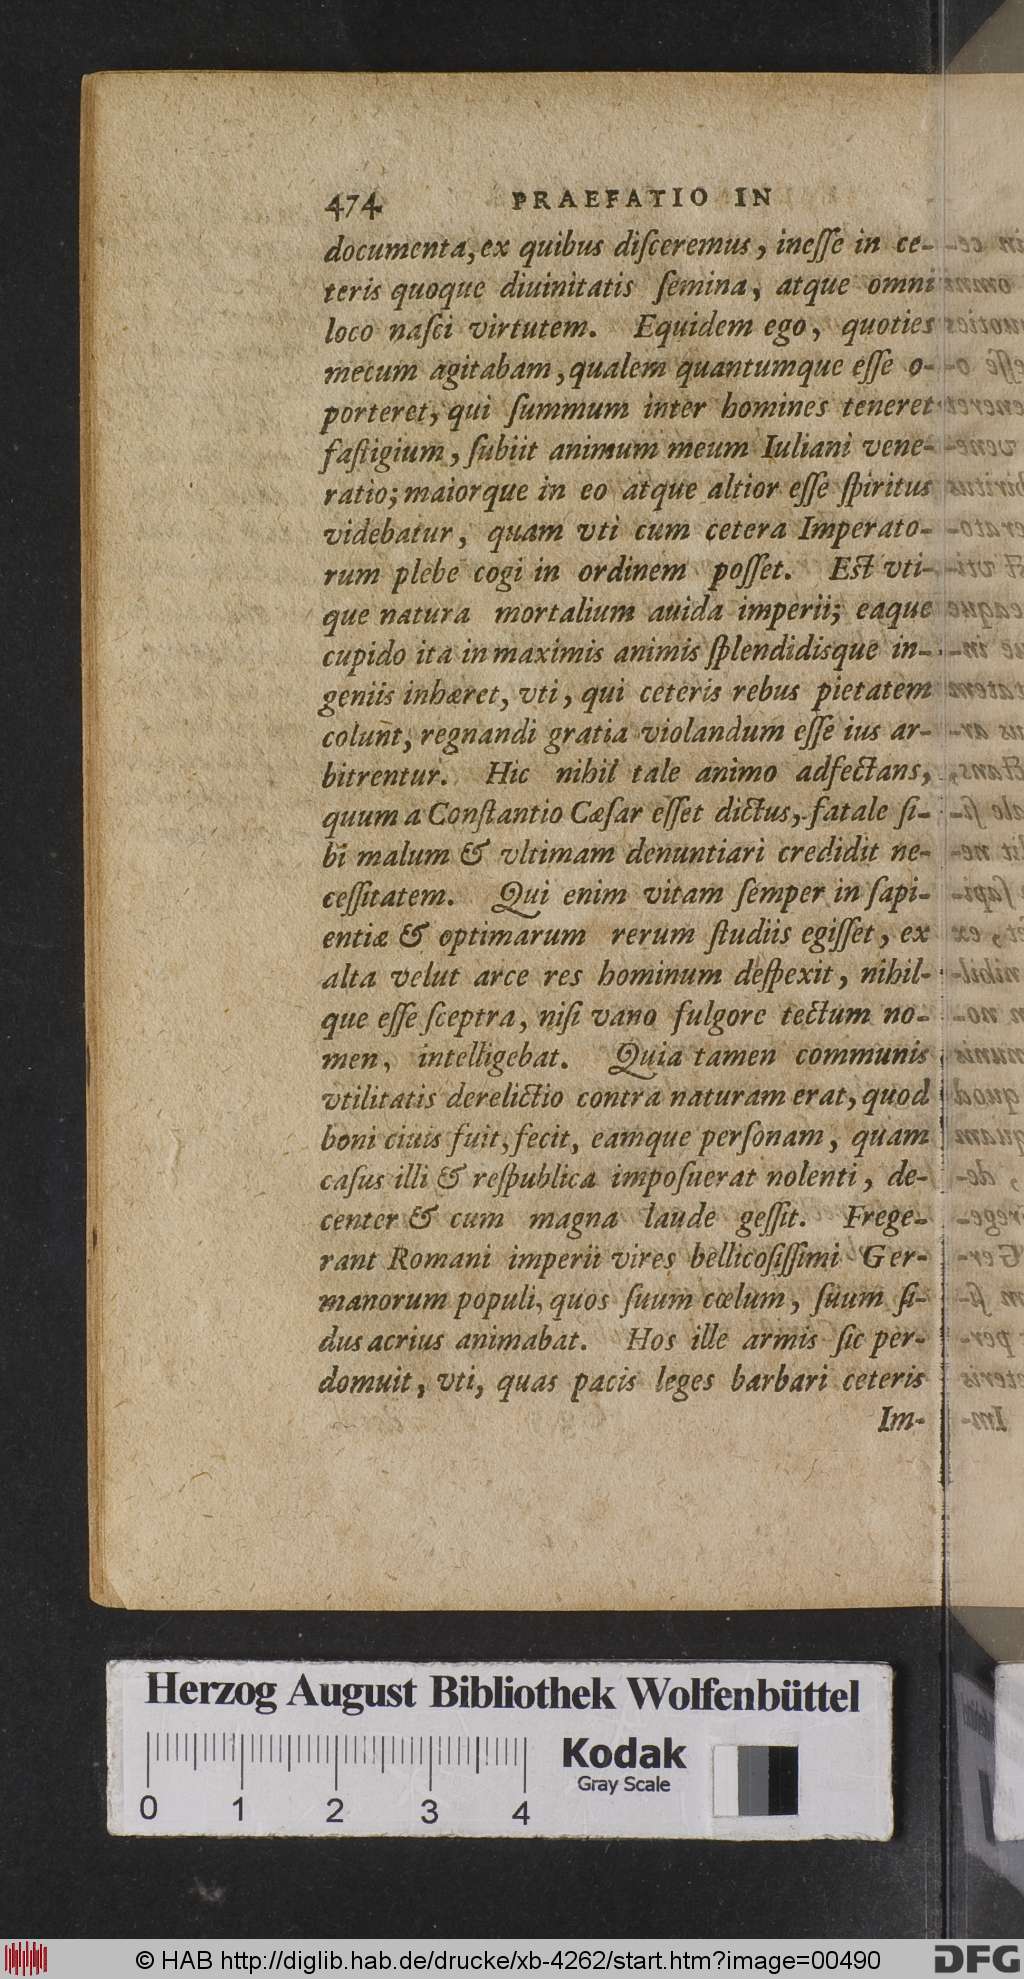 474 PRAEFATIO IN
documenta, ex quibus disceremus, inesse in ce-
teris quoque diuinitatis semina, atque omni
loco nasci virtutem. Equidem ego, quoties
mecum agitabam, qualem quantumque esse o-
porteret, qui summum inter homines teneret
fastigium, subiit animum meum Iuliani vene-
ratio; maiorque in eo atque altior esse spiritus
videbatur, quam vti cum cetera Imperato-
rum plebe cogi in ordinem posset. Est vti-
que natura mortalium auida imperii; eaque
cupido ita in maximis animis splendidisque in-
geniis inhæret, vti, qui ceteris rebus pietatem
colunt, regnandi gratia violandum esse ius ar-
bitrentur. Hic nihil tale animo adfectans,
quum a Constantio Cæsar esset dictus, fatale si-
bi malum & vltimam denuntiari credidit ne-
cessitatem. Qui enim vitam semper in sapi-
entiæ & optimarum rerum studiis egisset, ex
alta velut arce res hominum despexit, nihil-
que esse sceptra, nisi vano fulgore tectum no-
men, intelligebat. Quia tamen communis
vtilitatis derelictio contra naturam erat, quod
boni ciuis fuit, fecit, eamque personam, quam
casus illi & respublica imposuerat nolenti, de-
center & cum magna laude gessit. Frege-
rant Romani imperii vires bellicosissimi Ger-
manorum populi, quos suum cœlum, suum si-
dus acrius animabat. Hos ille armis sic per-
domuit, vti, quas pacis leges barbari ceteris
Im-
Herzog August Bibliothek Wolfenbüttel
Kodak
Gray Scale
0 1 2 3 4
© HAB http://diglib.hab.de/drucke/xb-4262/start.htm?image=00490
DFG